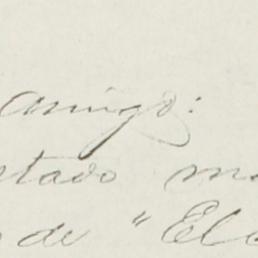 amigo:
tado m
de "El